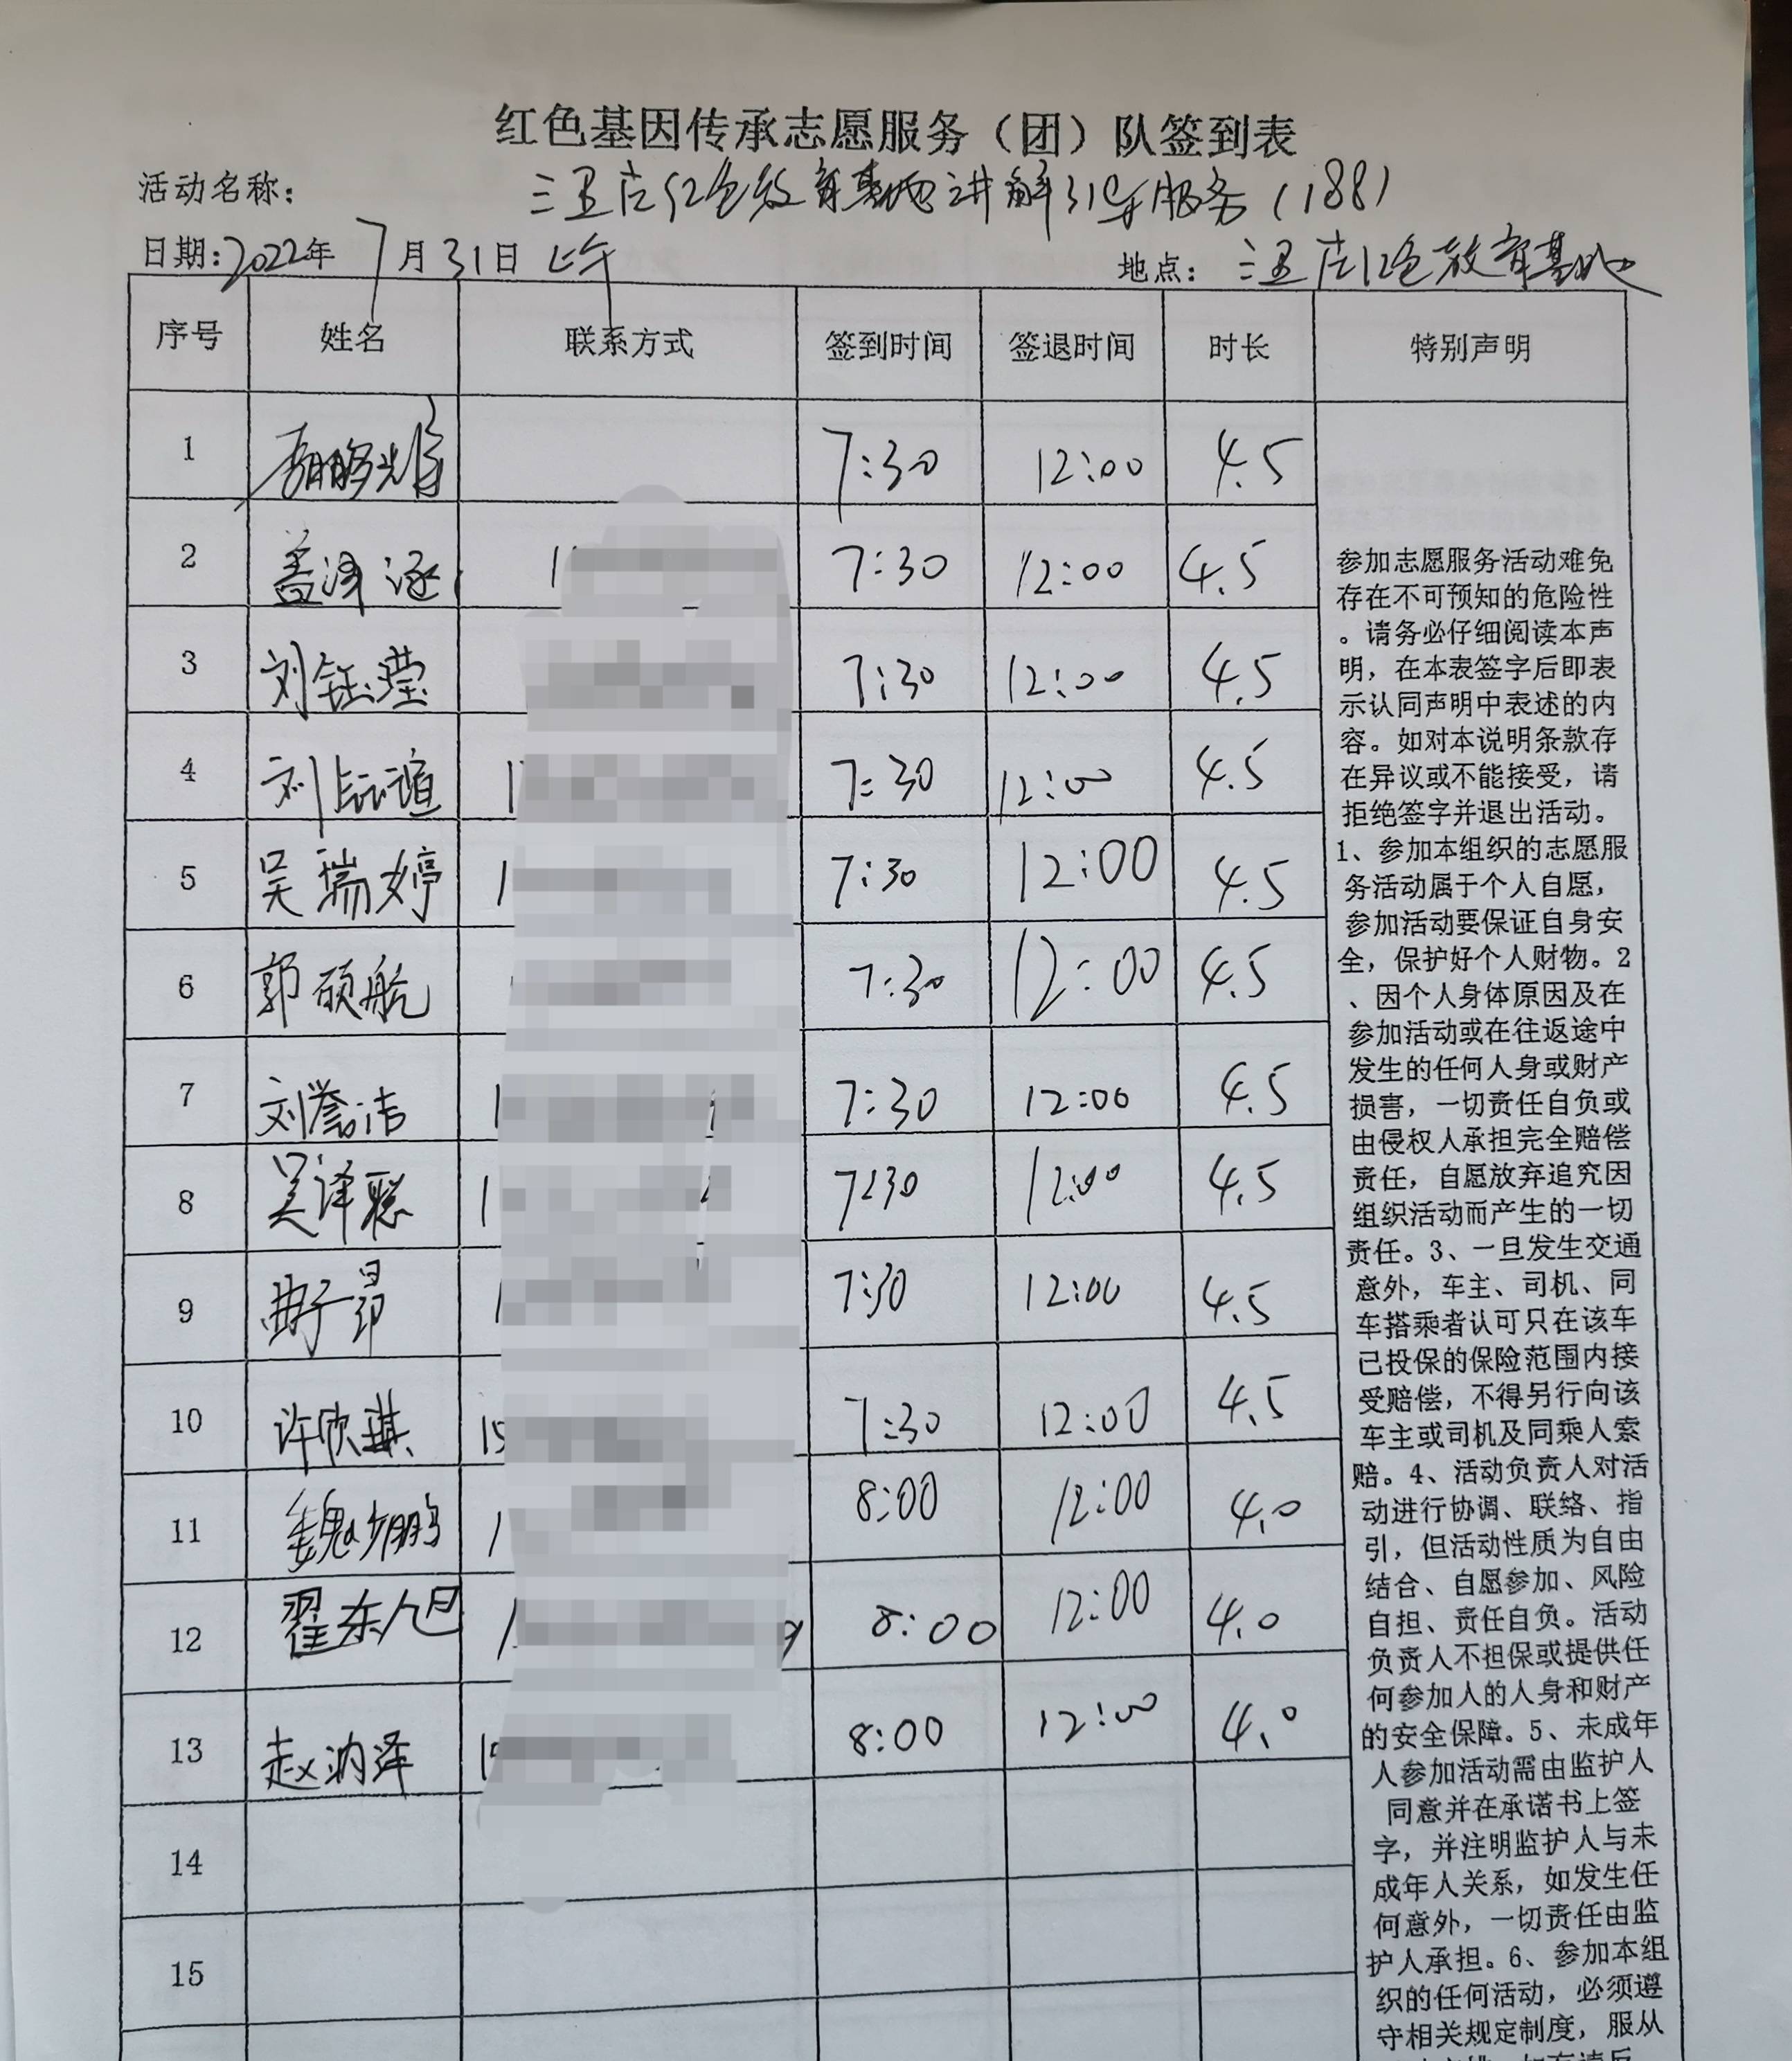 红色基因传承志愿服务（团）队签到表
活动名称： 三里庄红色教育基地讲解引导服务（188）
日期：2022年7月31日 上午 地点：三里庄红色教育基地
序号 姓名 联系方式 签到时间 签退时间 时长 特别声明
1 7:30 12:00 4.5
2 盖泽涵 1 7:30 12:00 4.5
3 刘钰滢 7:30 12:00 4.5
4 刘 1 7:30 12:00 4.5
5 吴瑞婷 1 7:30 12:00 4.5
6 郭硕航 7:30 12:00 4.5
7 刘誉洁 1 7:30 12:00 4.5
8 吴泽聪 1 7:30 12:00 4.5
9 曲子昂 1 7:30 12:00 4.5
10 许欣琪 15 7:30 12:00 4.5
11 魏 鹏 1 8:00 12:00 4.0
12 翟东旭 1 8:00 12:00 4.0
13 赵 泽 1 8:00 12:00 4.0
14
15
参加志愿服务活动难免
存在不可预知的危险性
。请务必仔细阅读本声
明，在本表签字后即表
示认同声明中表述的内
容。如对本说明条款存
在异议或不能接受，请
拒绝签字并退出活动。
1、参加本组织的志愿服
务活动属于个人自愿，
参加活动要保证自身安
全，保护好个人财物。2
、因个人身体原因及在
参加活动或在往返途中
发生的任何人身或财产
损害，一切责任自负或
由侵权人承担完全赔偿
责任，自愿放弃追究因
组织活动而产生的一切
责任。3、一旦发生交通
意外，车主、司机、同
车搭乘者认可只在该车
已投保的保险范围内接
受赔偿，不得另行向该
车主或司机及同乘人索
赔。4、活动负责人对活
动进行协调、联络、指
引，但活动性质为自由
结合、自愿参加、风险
自担、责任自负。活动
负责人不担保或提供任
何参加人的人身和财产
的安全保障。5、未成年
人参加活动需由监护人
同意并在承诺书上签
字，并注明监护人与未
成年人关系，如发生任
何意外，一切责任由监
护人承担。6、参加本组
织的任何活动，必须遵
守相关规定制度，服从